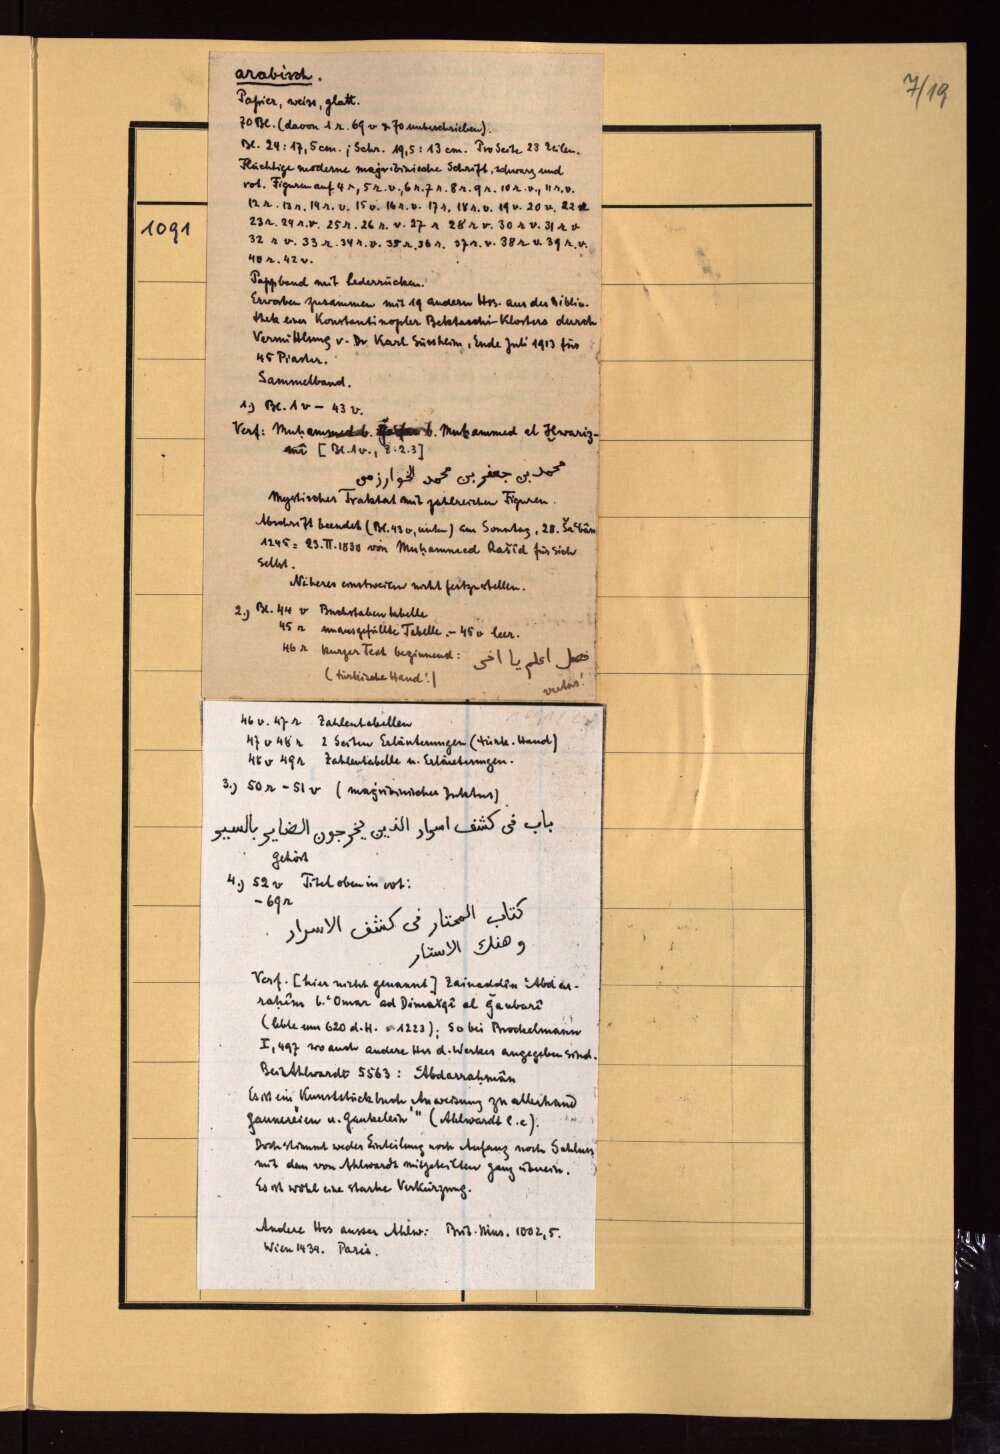 7/19
1091
arabisch.
Papier, weiss, glatt.
70 Bl. (davon 1 r. 69 v & 70 unbeschrieben).
Bl. 24:17,5 cm.; Schr. 19,5:13 cm. Pro Seite 23 Zeilen.
Flüchtige moderne maġribinische Schrift, schwarz und
rot. Figuren auf 4 r, 5 r.v., 6 r. 7 r. 8 r. 9 r. 10 r.v., 11 r.v.
12 r. 13 r. 14 r.v. 15 v. 16 r.v. 17 r, 18 r.v. 19 v. 20 v. 22
23 r. 24 r.v. 25 r. 26 r. v. 27 r 28 r v. 30 r v. 31 r v
32 r v. 33 r. 34 r.v. 35 r. 36 r. 37 r.v. 38 r v. 39 r.v.
40 r. 42 v.
Pappband mit Lederrücken.
Erworben zusammen mit 19 andern Hss. aus der Biblio-
thek eines Konstantinopler Bektaschi-Klosters durch
Vermittlung v. Dr Karl Süssheim, Ende Juli 1913 für
45 Piaster.
Sammelband.
1.) Bl. 1 v – 43 v.
Verf: Muḥammed b. b. Muḥammed al Ḫwariz-
mî [Bl. 1v., Z. 2.3]
محمد بن جعفر بن محمد الخوارزمى
Mystischer Traktat mit zahlreichen Figuren.
Abschrift beendet (Bl. 43 v, unten) am Sonntag, 28. Ša'bân
1245 = 23.II.1830 von Muḥammed Rašîd für sich
selbst.
Näheres einstweilen nicht festzustellen.
2.) Bl. 44 v Buchstabentabelle
45 r unausgefüllte Tabelle. – 45 v leer.
46 r kurzer Text beginnend: فصل اعلم يا اخى
(türkische Hand!)
vertas!
46 v. 47 r Zahlentabellen
47 v 48 r 2 Seiten Erläuterungen (türk. Hand)
48 v 49 r Zahlentabelle u. Erläuterungen.
3.) 50 r – 51 v (maġribinischer Duktus)
باب فى كشف اسرار الذين يخرجون الضاير بالسير
gehört
4.) 52 v Titel oben in rot:
– 69 r
كتاب المختار فى كشف الاسرار
و هتك الاستار
Verf. [hier nicht genannt] Zainaddîn 'Abdar-
raḥîm b. 'Omar ad Dimašqî al Ǧaubarî
(lebte um 620 d.H. = 1223); so bei Brockelmann
I, 497 wo auch andere Hss d. Werkes angegeben sind.
Bei Ahlwardt 5563: 'Abdarraḥmân
Es ist ein Kunststückbuch „Anweisung zu allerhand
Gaunereien u. Gaukelein" (Ahlwardt l.c).
Doch stimmt weder Einteilung noch Anfang noch Schluss
mit dem von Ahlwardt mitgeteilten ganz überein.
Es ist wohl eine starke Verkürzung.
Andere Hss ausser Ahlw: Brit. Mus. 1002,5.
Wien 1434. Paris.